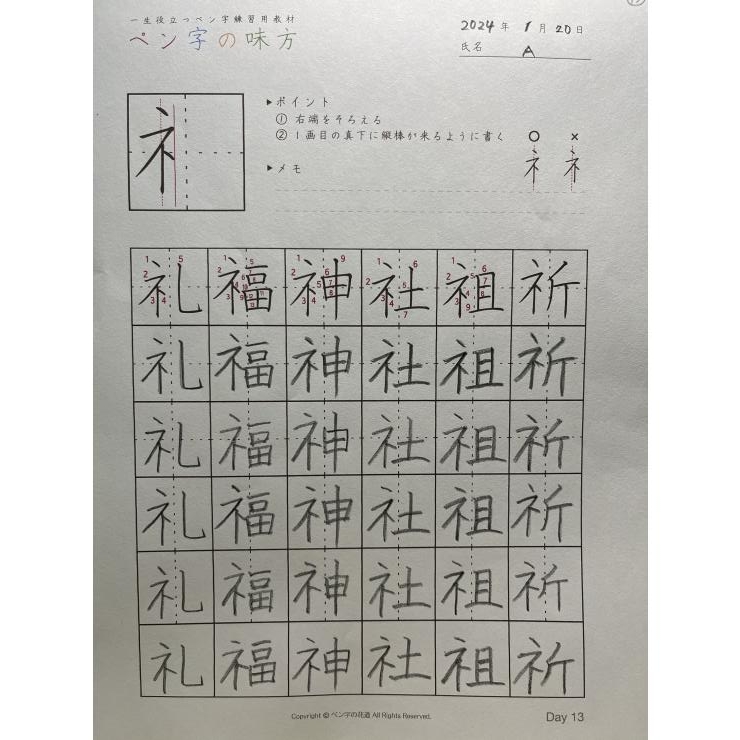 一生役立つペン字練習用教材
ペン字の味方
2024年 1月20日
氏名 A
ネ
▶ポイント
① 右端をそろえる
② 1画目の真下に縦棒が来るように書く ○ ×
ネ ネ
▶メモ
礼 福 神 社 祖 祈
礼 福 神 社 祖 祈
礼 福 神 社 祖 祈
礼 福 神 社 祖 祈
礼 福 神 社 祖 祈
礼 福 神 社 祖 祈
Copyright © ペン字の花道 All Rights Reserved.
Day 13